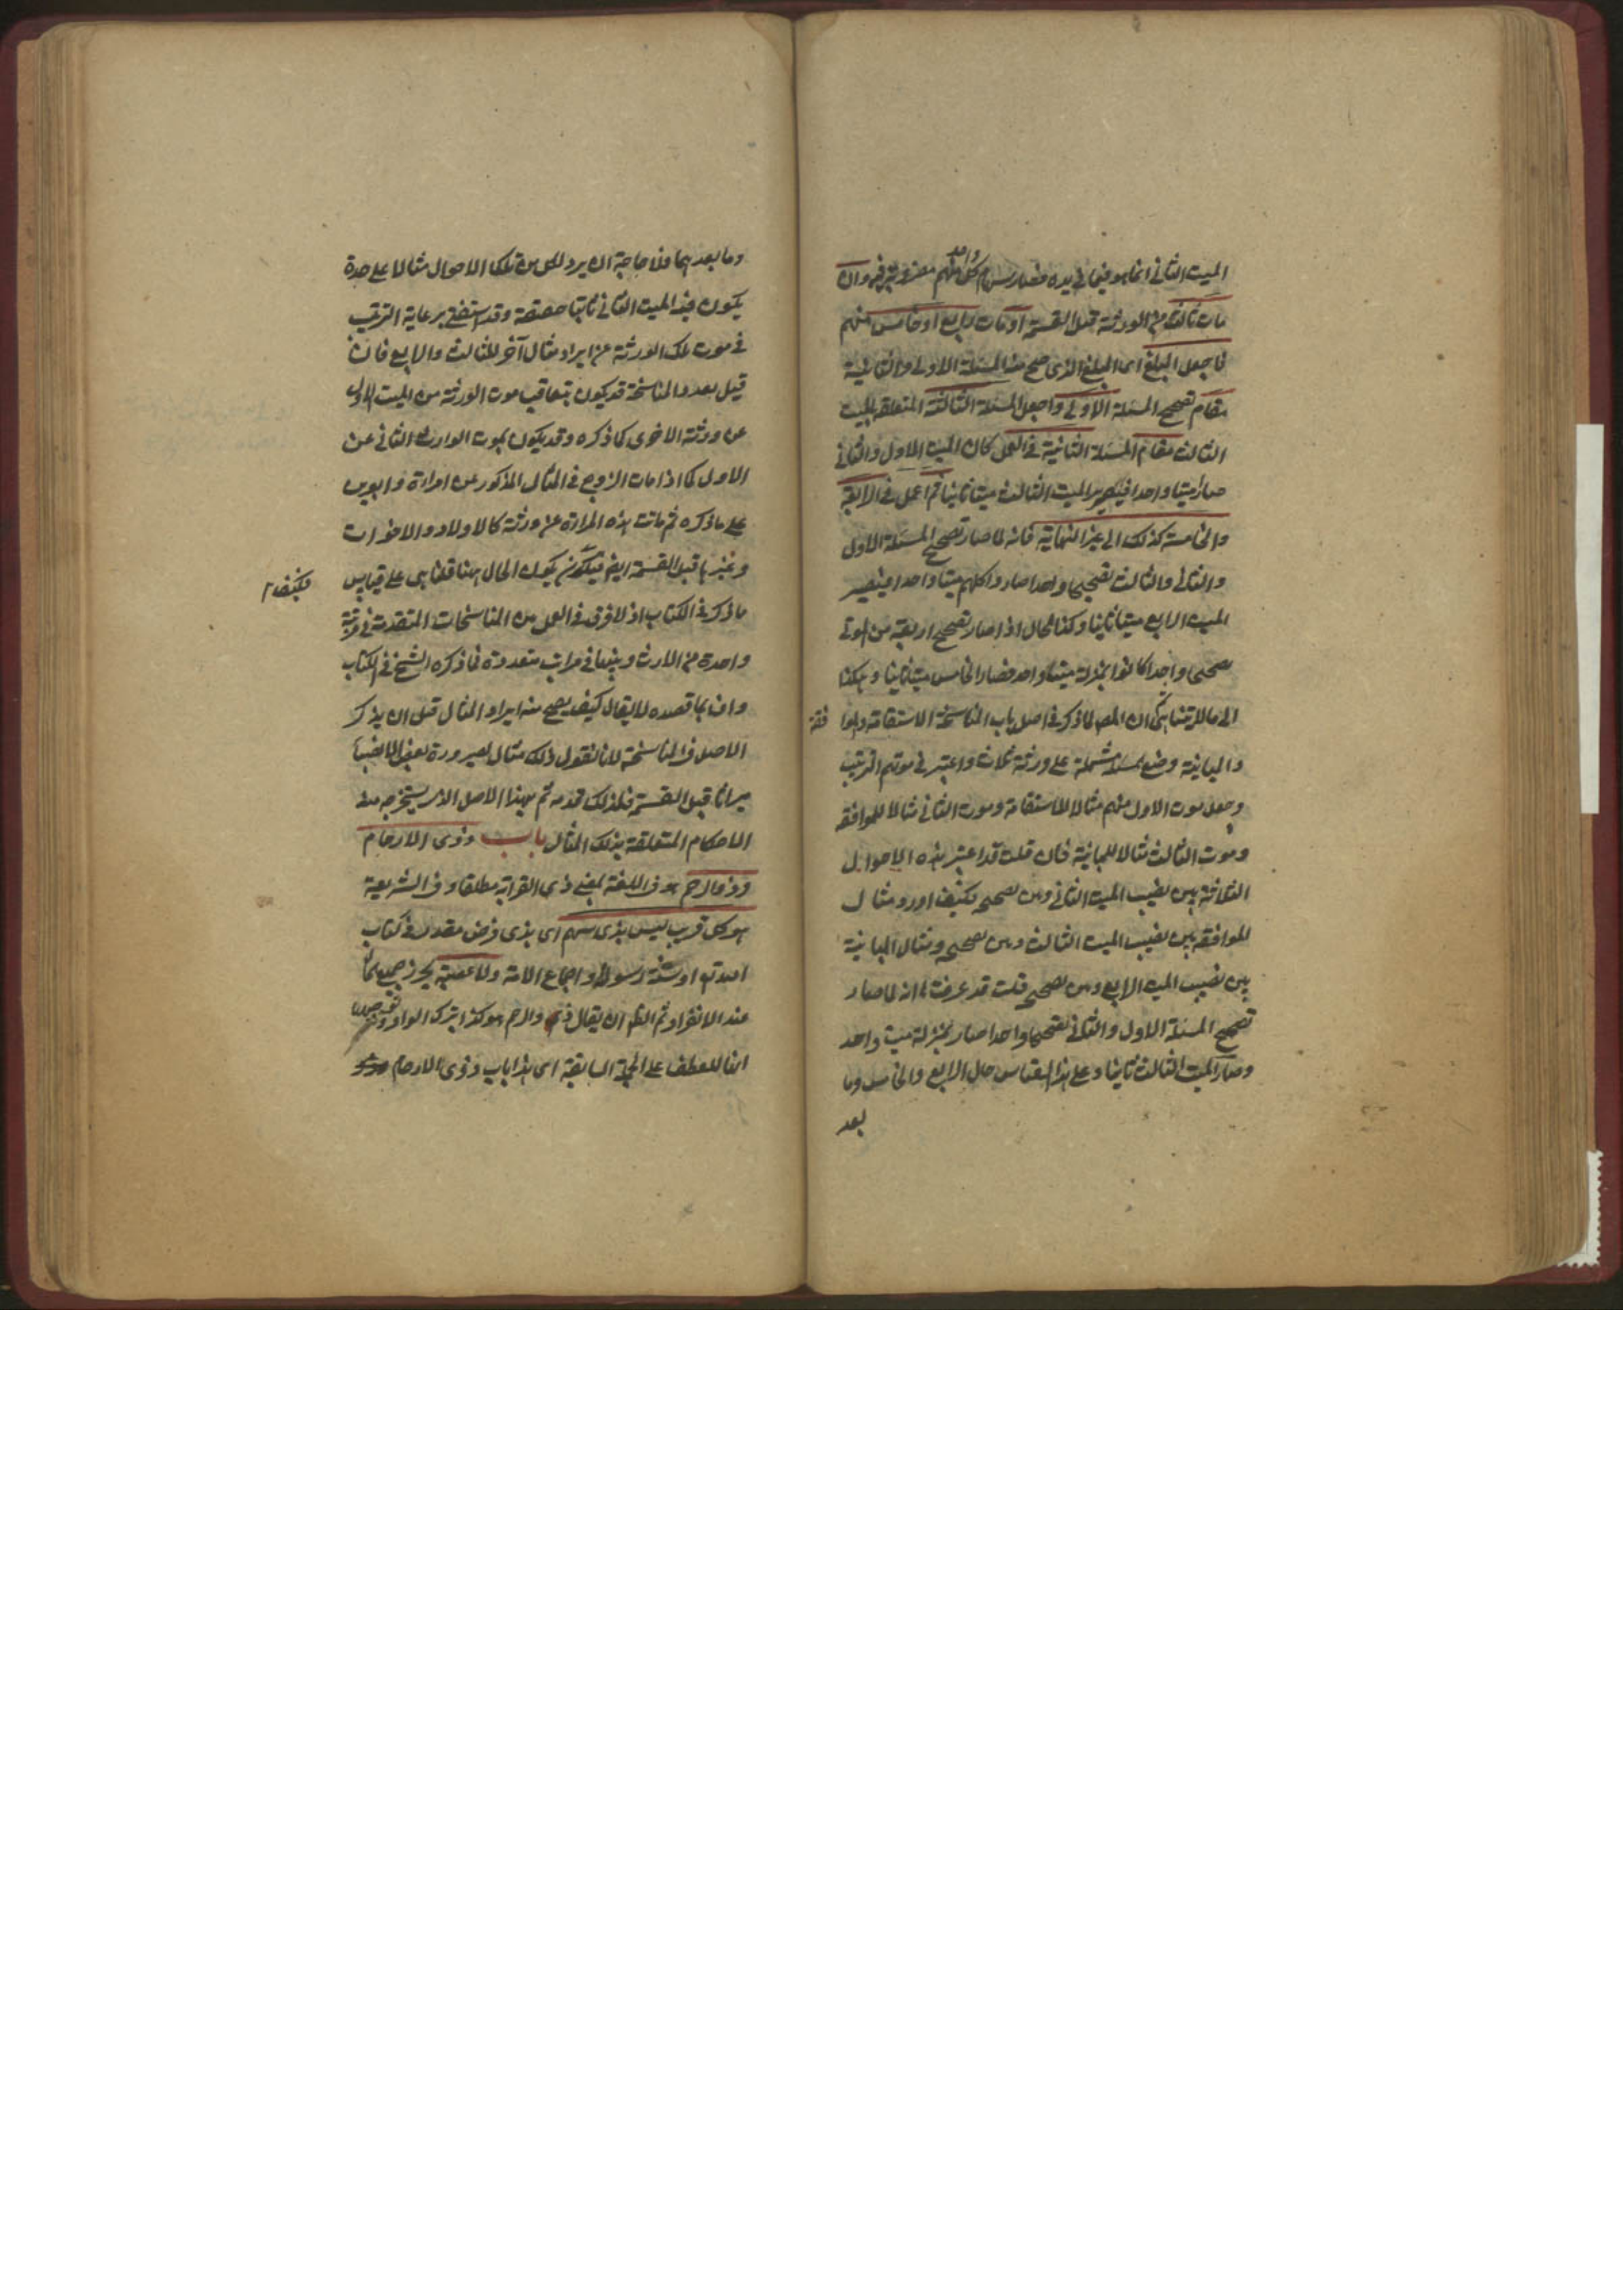 الميت الثاني انما هو فيما في يده فصار سهام كل واحد منهم مضروبة فيه وان
مات ثالث من الورثة قبل القسمة او مات رابع او خامس منهم
فاجعل المبلغ اى المبلغ الذى صح منه المسئلة الاولى والثانية
مقام تصحيح المسئلة الاولى واجعل المسئلة الثالثة المتعلقة بالميت
الثالث مقام المسئلة الثانية في العمل كان الميت الاول والثاني
صارا ميتا واحدا فيصير الميت الثالث ميتا ثانيا ثم اعمل في الرابعة
والخامسة كذلك الى غير النهاية فانه لما صار تصحيح المسئلة الاول
والثاني والثالث تصحيحا واحدا صاروا كلهم ميتا واحدا فيصير
الميت الرابع ميتا ثانيا وكذا الحال اذا صار تصحيح اربعة من الموتى
صحيحا واحدا كانوا بمنزلة ميت واحد فصار الخامس ميتا ثانيا وهكذا
الى ما لا يتناهى ان المص لما ذكر في اصل باب المناسخة الاستقامة والموا
فقة
والمباينة وضع مسئلة مشتملة على ورثة ثلاث واعتبر في موتهم الترتيب
وجعل موت الاول منهم مثالا للاستقامة وموت الثاني مثالا للموافقة
وموت الثالث مثالا للمباينة فان قلت قد اعتبر هذه الاحوال
الثلاثة بين نصيب الميت الثاني وبين تصحيحه فكيف اورد مثال
الموافقة بين نصيب الميت الثالث وبين تصحيحه ومثال المباينة
بين نصيب الميت الرابع وبين تصحيحه قلت قد عرفت انه لما صار
تصحيح المسئلة الاول والثاني تصحيحا واحدا صار بمنزلة ميت واحد
وصار الميت الثالث ثانيا وعلى هذا القياس حال الرابع والخامس وما
بعد
وما بعدهما فلا حاجة الى ان يرد لكل من تلك الاحوال مثالا على حدة
يكون فيه الميت الثاني ثانيا حقيقة وقد استغنى برعاية الترتيب
في موت تلك الورثة عن ايراد مثال آخر للثالث والرابع فان
قيل بعد والمناسخة قد يكون بتعاقب موت الورثة من الميت الاول
عن ورثة الاخرى كما ذكره وقد يكون بموت الوارث الثاني عن
الاول كما اذا مات الزوج في المثال المذكور عن امراة وابوين
على ما ذكره ثم ماتت هذه المراة عن ورثة كالاولاد والاخوات
وغيرها قبل القسمة ايضا فكيف يكون الحال هنا قلنا هى على قياس
فكيف
ما ذكر في الكتاب اذ لا فرق في العمل بين المناسخات المتقدمة في مرتبة
واحدة من الارث وبينها في مراتب متعددة فما ذكره الشيخ في الكتاب
واف بما قصده لا يقال كيف يصح منه ايراد المثال قبل ان يذكر
الاصل في المناسخة لانا نقول ذلك مثال لصيرورة بعض الانصباء
ميراثا قبل القسمة فلذلك قدمه ثم مهد الاصل الذى يستخرج منه
الاحكام المتعلقة بذلك المثال باب ذوى الارحام
وذو الرحم هو في اللغة بمعنى ذى القرابة مطلقا وفي الشريعة
هو كل قريب ليس بذى سهم اى بذى فرض مقدر في كتاب
الله تع او سنة رسوله او اجماع الامة ولا عصبة يحرز جميع المال
عند الانفراد ثم الظ ان يقال ذو الرحم هو كذا بترك الواو
انفا للعطف على الجملة السابقة اى هذا باب ذوى الارحام